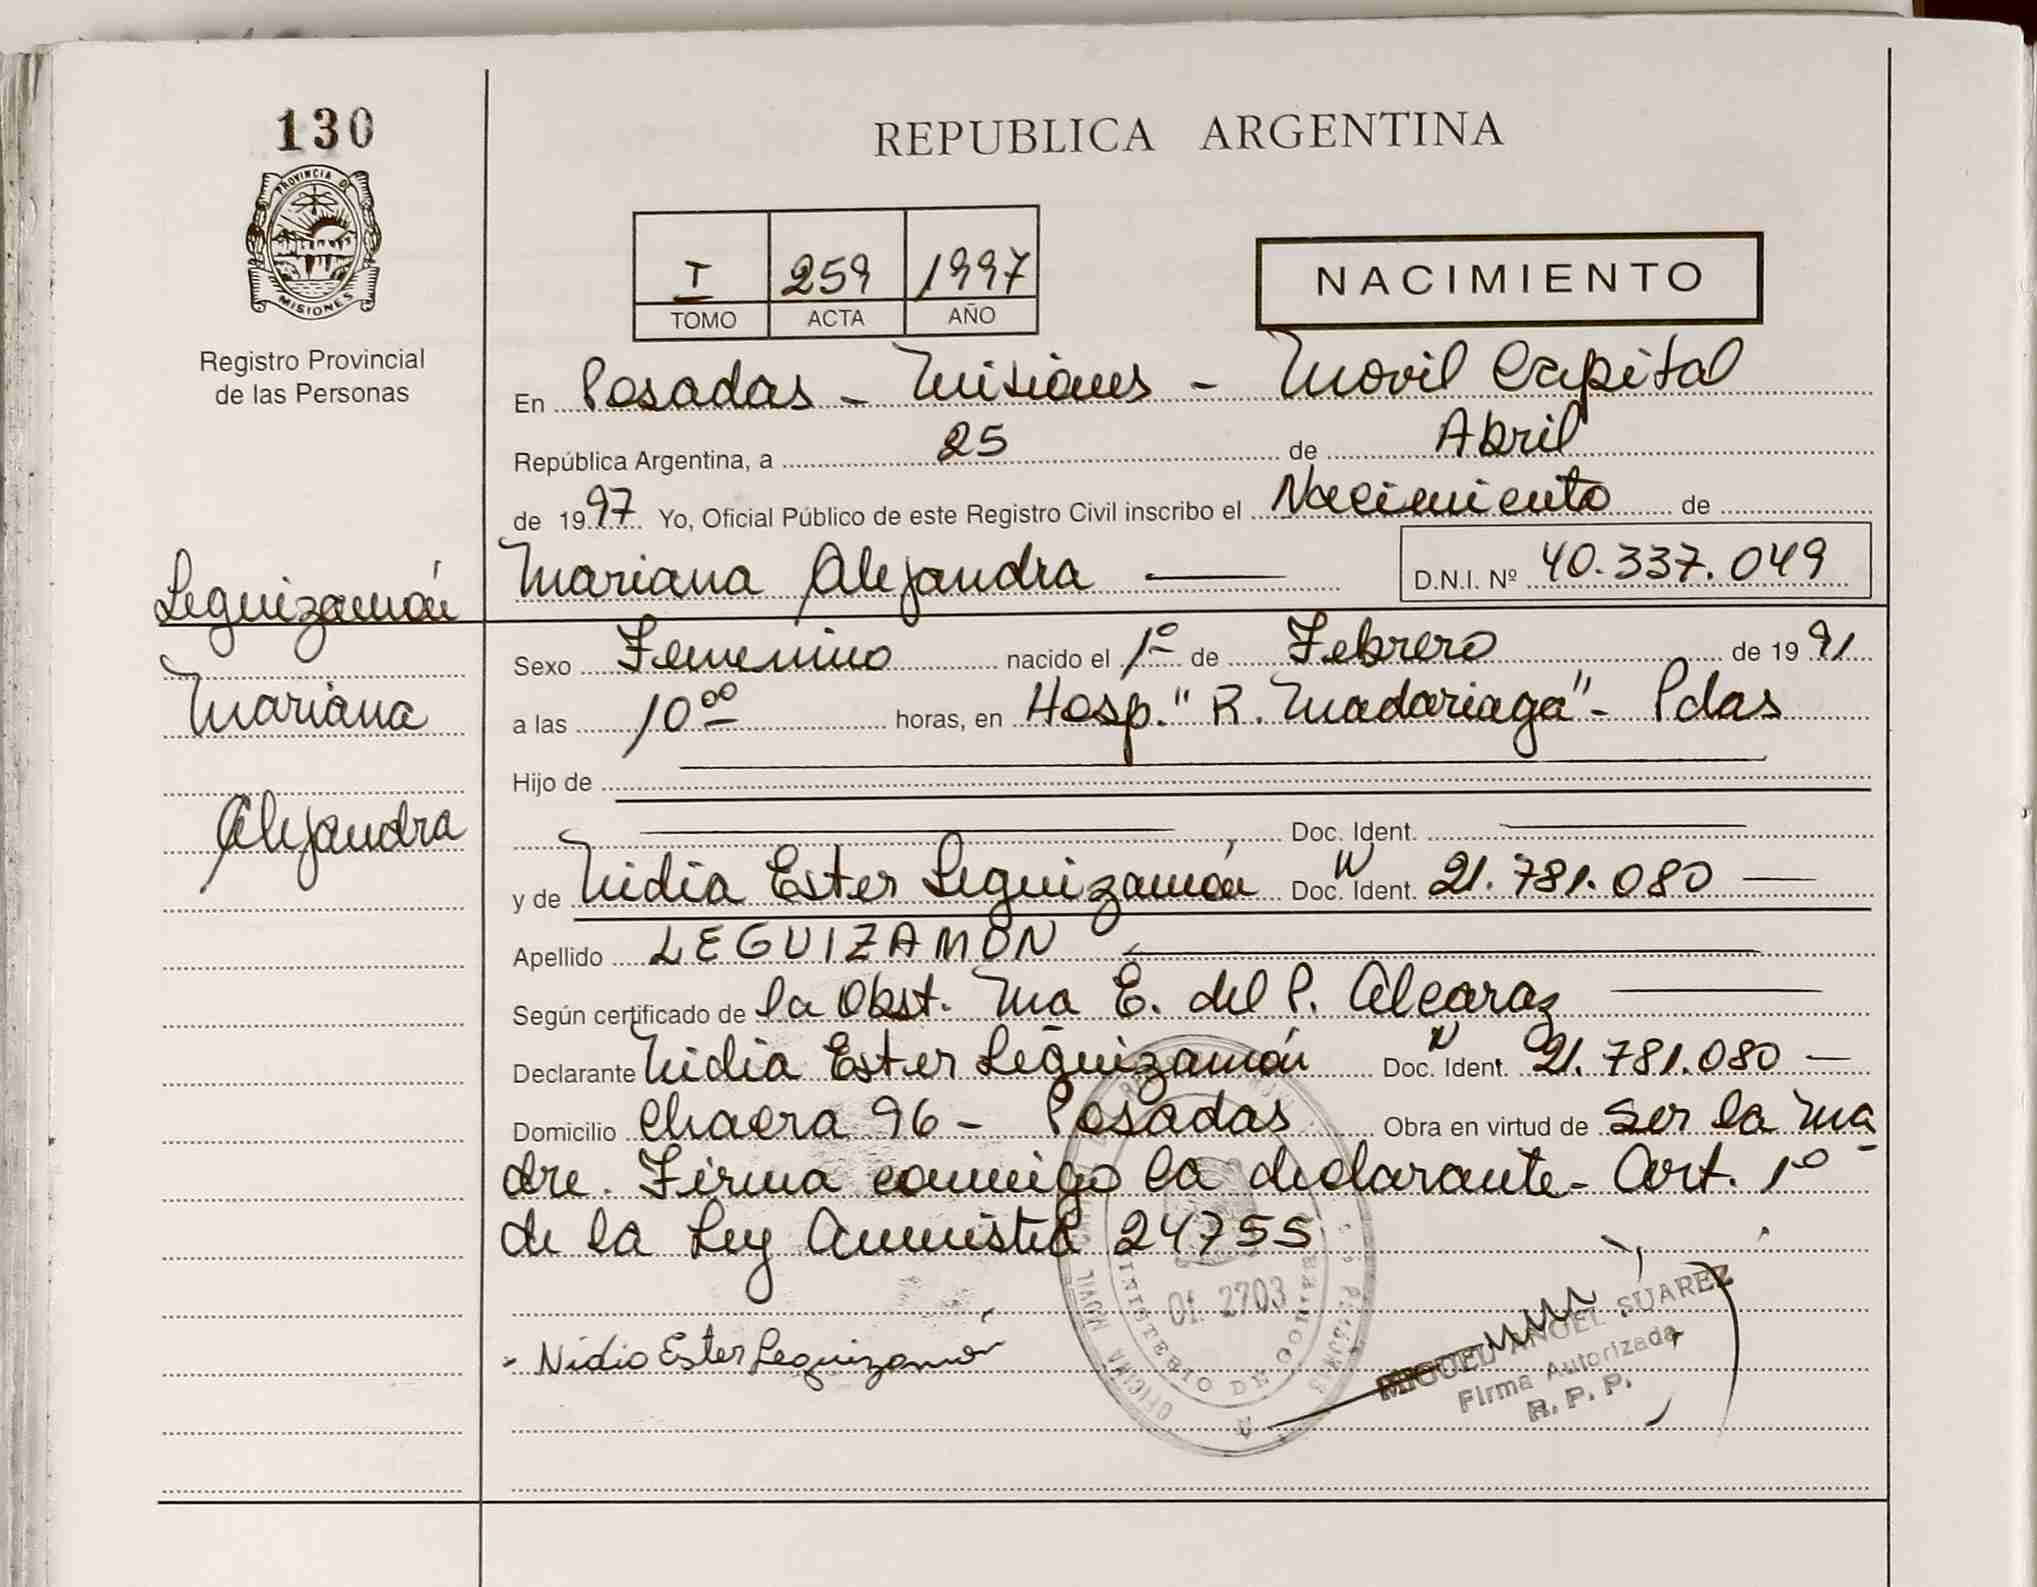 130
PROVINCIA DE
MISIONES
Registro Provincial
de las Personas
REPUBLICA ARGENTINA
I 259 1997
TOMO ACTA AÑO
NACIMIENTO
En Posadas - Misiones - Movil Capital
República Argentina, a 25 de Abril
de 1997 Yo, Oficial Público de este Registro Civil inscribo el Nacimiento de
Mariana Alejandra — D.N.I. Nº 40.337.049
Leguizamón
Mariana
Alejandra
Sexo Femenino nacido el 1º de Febrero de 1991
a las 10 00 horas, en Hosp. "R. Madariaga" - Pdas
Hijo de
Doc. Ident.
y de Nidia Ester Leguizamón Doc. Ident. N 21.781.080 —
Apellido LEGUIZAMON
Según certificado de la Obst. Ma E. del P. Alcaraz —
Declarante Nidia Ester Leguizamón Doc. Ident. N 21.781.080 —
Domicilio Chacra 96 - Posadas Obra en virtud de ser la ma
dre. Firma conmigo la declarante - Art. 1º
de la Ley Amnistia 24755
Nidia Ester Leguizamón
OFICINA MOVIL
MINISTERIO DE GOBIERNO
Of. 2703
MIGUEL ANGEL SUAREZ
Firma Autorizada
R. P. P.